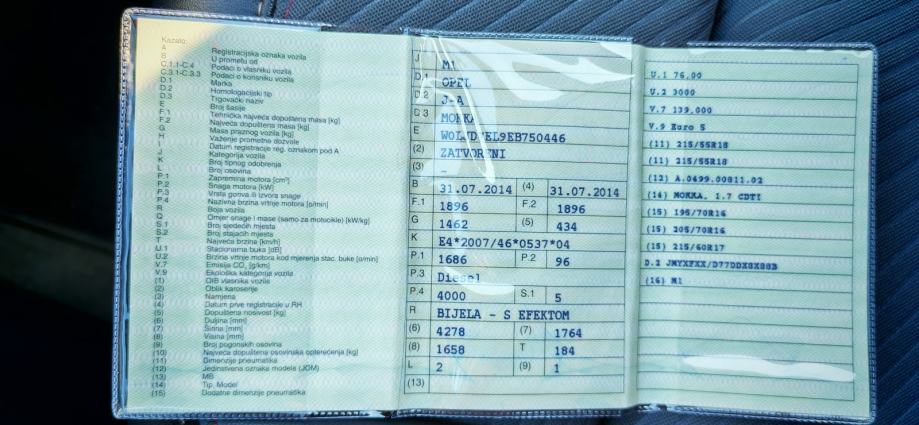 Kazalo:
A Registracijska oznaka vozila
B U prometu od
C.1.1-C.4 Podaci o vlasniku vozila
C.3.1-C.3.3 Podaci o korisniku vozila
D.1 Marka
D.2 Homologacijski tip
D.3 Trgovački naziv
E Broj šasije
F.1 Tehnička najveća dopuštena masa [kg]
F.2 Najveća dopuštena masa [kg]
G Masa praznog vozila [kg]
H Važenje prometne dozvole
I Datum registracije reg. oznakom pod A
J Kategorija vozila
K Broj tipnog odobrenja
L Broj osovina
P.1 Zapremina motora [cm³]
P.2 Snaga motora [kW]
P.3 Vrsta goriva ili izvora snage
P.4 Nazivna brzina vrtnje motora [o/min]
R Boja vozila
Q Omjer snage i mase (samo za motocikle) [kW/kg]
S.1 Broj sjedećih mjesta
S.2 Broj stajaćih mjesta
T Najveća brzina [km/h]
U.1 Stacionarna buka [dB]
U.2 Brzina vrtnje motora kod mjerenja stac. buke [o/min]
V.7 Emisija CO₂ [g/km]
V.9 Ekološka kategorija vozila
(1) OIB vlasnika vozila
(2) Oblik karoserije
(3) Namjena
(4) Datum prve registracije u RH
(5) Dopuštena nosivost [kg]
(6) Duljina [mm]
(7) Širina [mm]
(8) Visina [mm]
(9) Broj pogonskih osovina
(10) Najveća dopuštena osovinska opterećenja [kg]
(11) Dimenzije pneumatika
(12) Jedinstvena oznaka modela (JOM)
(13) MB
(14) Tip, Model
(15) Dodatne dimenzije pneumatika
J M1
D.1 OPEL
D.2 J-A
D.3 MOKKA
E
(2) ZATVORENI
(3) –
B 31.07.2014 (4) 31.07.2014
F.1 1896 F.2 1896
G 1462 (5) 434
K E4*2007/46*0537*04
P.1 1686 P.2 96
P.3 Diesel
P.4 4000 S.1 5
R BIJELA - S EFEKTOM
(6) 4278 (7) 1764
(8) 1658 T 184
L 2 (9) 1
(13)
U.1 76,00
U.2 3000
V.7 139,000
V.9 Euro 5
(11) 215/55R18
(11) 215/55R18
(12) A.0499.00811.02
(14) MOKKA, 1.7 CDTI
(15) 195/70R16
(15) 205/70R16
(15) 215/60R17
D.2
(16) M1